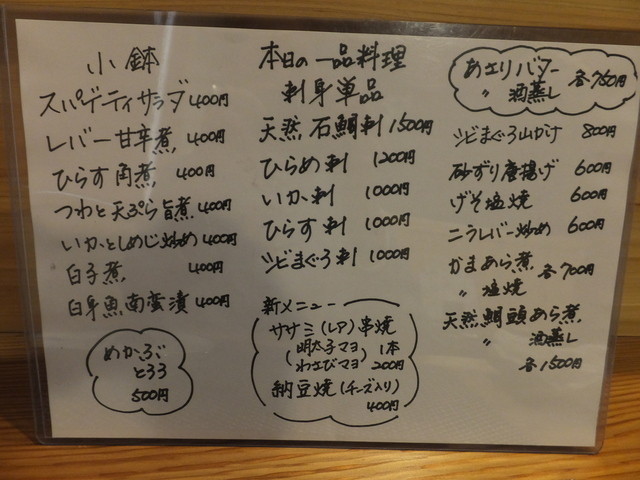 小鉢
スパゲティサラダ 400円
レバー甘辛煮 400円
ひらす角煮 400円
つわと天ぷら旨煮 400円
いかとしめじ炒め 400円
白子煮 400円
白身魚南蛮漬 400円
めかぶ
とろろ
500円
本日の一品料理
刺身単品
天然石鯛刺 1500円
ひらめ刺 1200円
いか刺 1000円
ひらす刺 1000円
シビまぐろ刺 1000円
新メニュー
ササミ(レア)串焼
(明太子マヨ 1本
わさびマヨ 200円
納豆焼(チーズ入り)
400円
あさりバター 各750円
〃 酒蒸し
シビまぐろ山かけ 800円
砂ずり唐揚げ 600円
げそ塩焼 600円
ニラレバー炒め 600円
かまあら煮 各700円
〃 塩焼
天然鯛頭あら煮
〃 酒蒸し
各1500円